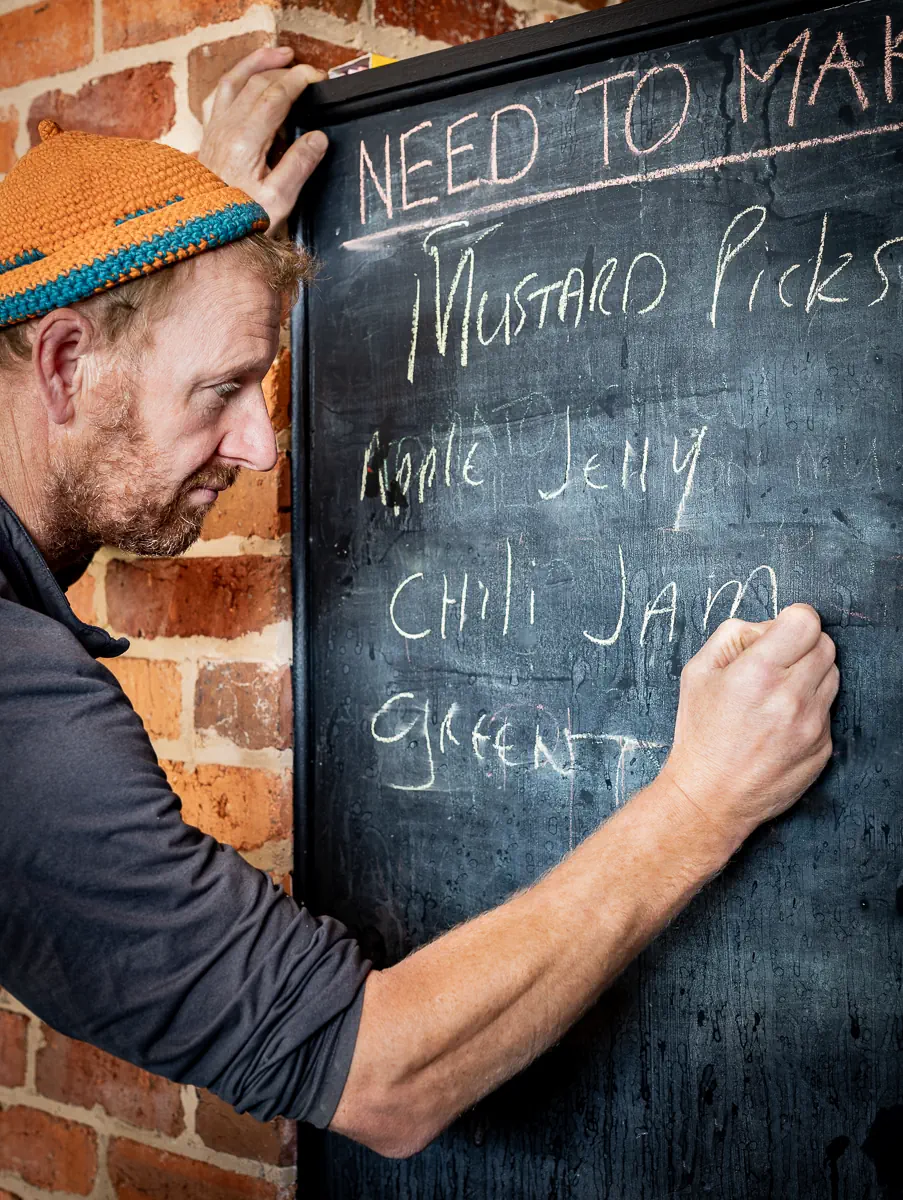 NEED TO MAK
Mustard Picks
Apple Jelly
Chili Jam
Green T